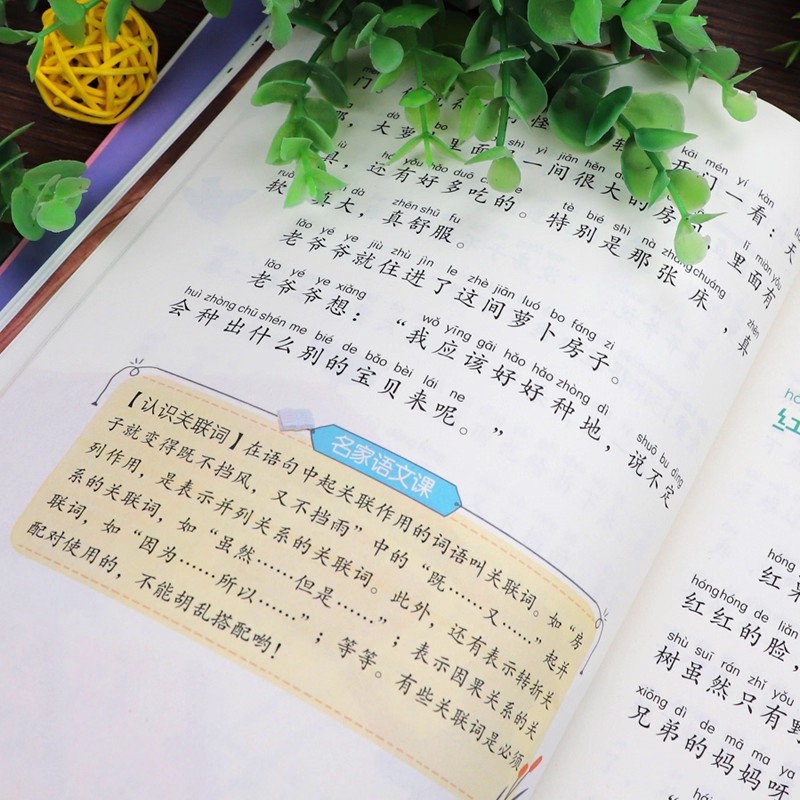 kāi mén yí kàn
开门一看：天
大萝 里面 shì yì jiān hěn dà
一间很大的房 里面有
hái yǒu hǎo duō chī
具，还有好多吃的。
tè bié shì nà zhāng chuáng
特别是那张床，真
zhēn shū fu
软 真大，真舒服。
lǎo yé ye jiù zhù jìn le zhè jiān luó bo fáng zi
老爷爷就住进了这间萝卜房子。
lǎo yé ye xiǎng wǒ yīng gāi hǎo hǎo zhòng dì shuō bu dìng
老爷爷想：“我应该好好种地，说不定
huì zhòng chū shén me bié de bǎo bèi lái ne
会种出什么别的宝贝来呢。”
名家语文课
【认识关联词】在语句中起关联作用的词语叫关联词。如“房
子就变得既不挡风，又不挡雨”中的“既……又……”起并
列作用，是表示并列关系的关联词。此外，还有表示转折关
系的关联词，如“虽然……但是……”；表示因果关系的关
联词，如“因为……所以……”；等等。有些关联词是必须
配对使用的，不能胡乱搭配哟！
红
hóng
红
hóng hóng de liǎn
红红的脸，
shù suī rán zhǐ yǒu
树虽然只有
xiōng dì de mā ma ya
兄弟的妈妈呀